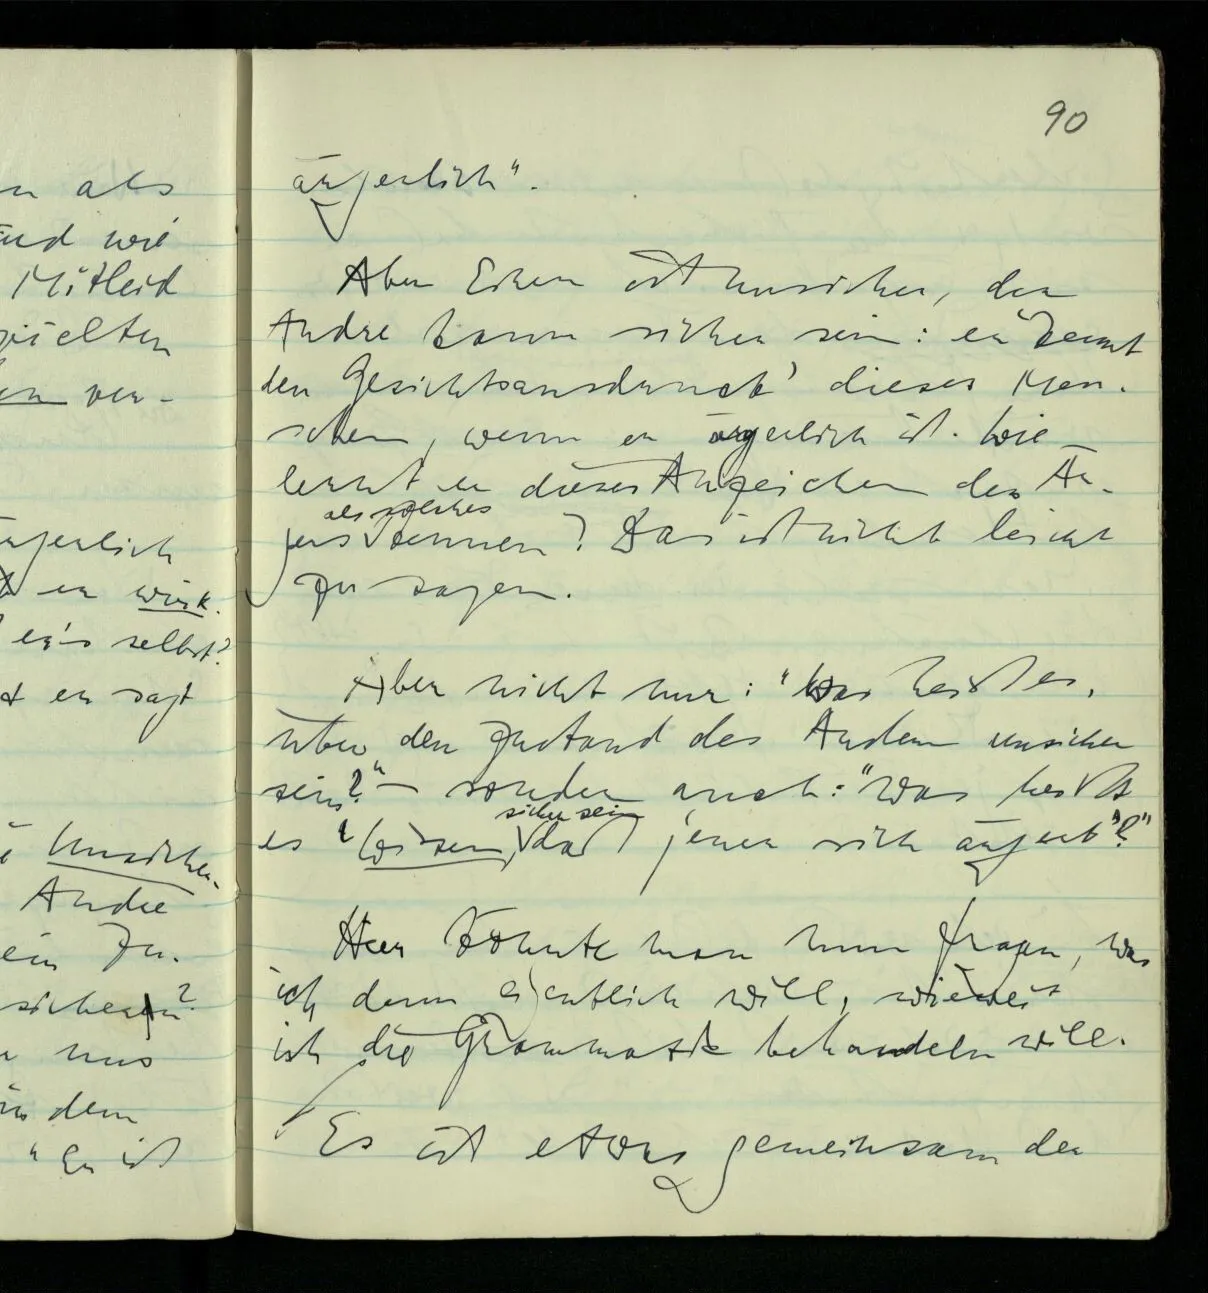 als
und wie
Mitleid
spielten
ver-
er wirk.
er's selbst?
er sagt
Unsicher-
Andre
ein Zu.
uns
in dem
"Er ist
90
ärgerlich".
Aber Einer ist unsicher, der
Andre kann sicher sein: er 'kennt
den Gesichtsausdruck' dieses Men-
schen, wenn er ärgerlich ist. Wie
lernt er dieses Anzeichen des Är-
als solches
gers kennen? Das ist nicht leicht
zu sagen.
Aber nicht nur: "Was heißt es,
über den Zustand des Andern unsicher
sein?" – sondern auch: "Was heißt
sicher sein
es 'Wissen, daß jener sich ärgert'?"
Hier könnte man nun fragen, was
ich denn eigentlich will, wieweit
ich die Grammatik behandeln will.
Es ist etwas gemeinsam der